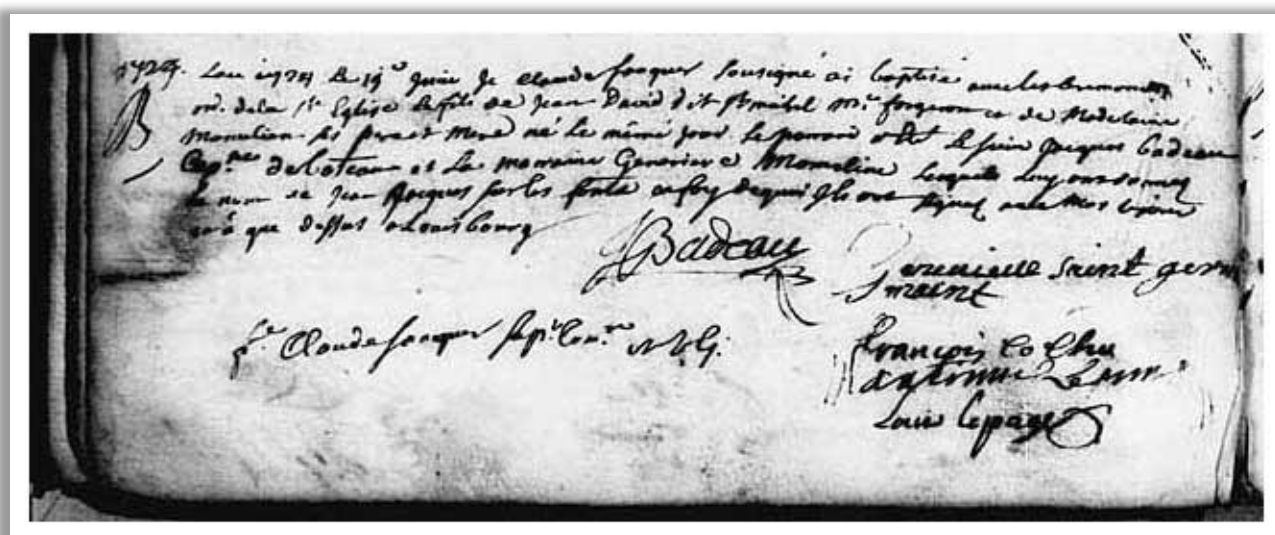 1724. Lan 1724 Le 19e Juin Je Claude soussigné ai baptisé avec les
ord. de la Ste Eglise le fils de Jean David dit St michel Me forgeron et de Madelaine
Momelian ses pere et Mere né le même jour Le parrain a été Le sieur Jacques Badeau
B
Cap.ne de bateau et La marraine Genevieve Momeline Lesquels luy ont donnez
le nom de Jean Jacques sur les fonts en foy de quoi Ils ont signez avec Moi
que dessus a Louisbourg
Badeau
saint ger
maint
f.e Claude
François
Louis lepage